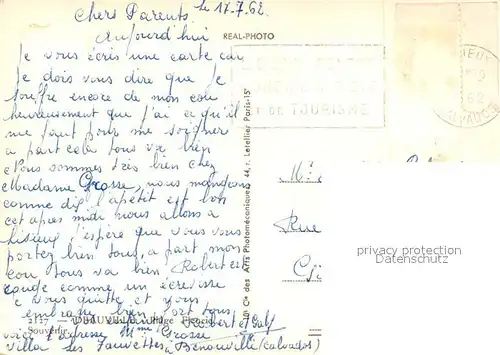 le 17.7.62
Chers Parents.
Aujourd'hui
REAL-PHOTO
je vous écris une carte car
je dois vous dire que je
souffre encore de mon cou
heureusement que j'ai ce qu'il
me faut pour me soigner
a part cela tous va bien
Nous sommes très bien chez
Madame Grosse, nous mangeons
comme dix l'apétit est bon
cet après midi nous allons a
Lisieux j'espère que vous vous
portez bien tous, a part mon
cou tous va bien, Robert est
rouge comme un écrevisse
je vous quitte et vous
embrasse bien fort tous
2127 — DEAUVILLE — Plage Fleurie
Souvenir
Robert et
voici l'adresse Mme Grosse
villa les Fauvettes a Bénouville (calvados)
Cie des Arts Photomécaniques 44, r. Letellier Paris-15e
DE TOURISME
62
Rue
privacy protection
www.oldthing.de